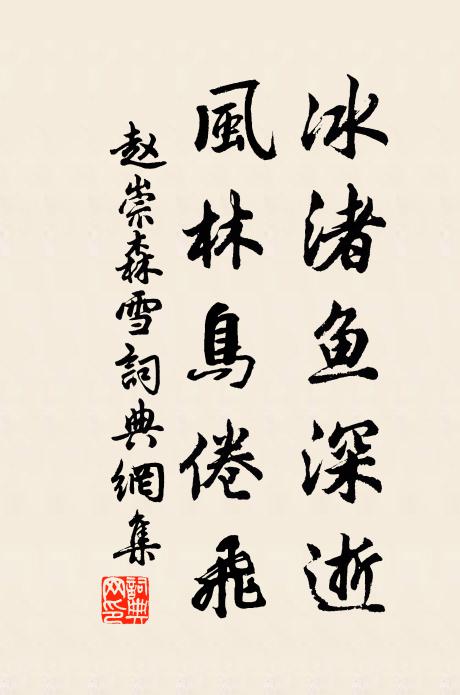 冰渚鱼深逝
風林鳥倦飛
赵崇森雪詞典網集
詞典网印